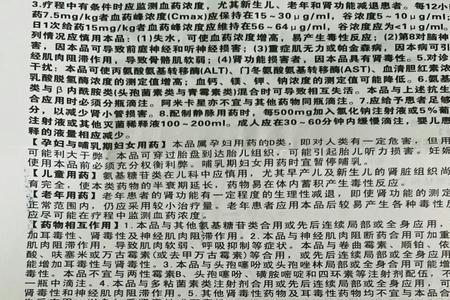 3.疗程中有条件时应监测血药浓度,尤其新生儿、老年和肾功能减退患者。每12小
药7.5mg/kg者血药峰浓度(Cmax)应保持在15~30μg/ml,谷浓度5~10μg/ml;
日1次给药15mg/kg者血药峰浓度应维持在56~64μg/ml,谷浓度应为<1μg/ml
列情况应慎用本品:(1)失水,可使血药浓度增高,易产生毒性反应。(2)第8对脑神
害,因本品可导致前庭神经和听神经损害;(3)重症肌无力或帕金森病,因本病可引
经肌肉阻滞作用,导致骨骼肌软弱;(4)肾功能损害者,因本品具有肾毒性。5.对诊
干扰:本品可使丙氨酸氨基转移酶(ALT)、门冬氨酸氨基转移酶(AST)、血清胆红素浓
乳酸脱氢酶浓度的测定值增高;血钙、镁、钾、钠浓度的测定值可能降低。6.氨基
类与β内酰胺类(头孢菌素类与青霉素类)混合时可导致相互失活。本品与上述抗生
合应用时必须分瓶滴注。阿米卡星亦不宜与其他药物同瓶滴注。7.应给予患者足够
分,以减少肾小管损害。8.配制静脉用药时,每500mg加入氯化钠注射液或5%葡
注射液或其他灭菌稀释液100~200ml。成人应在30~60分钟内缓慢滴注,婴儿患
释的液量相应减少。
【孕妇与哺乳期妇女用药】本品属孕妇用药的D类,即对人类有一定危害,但用
可能利大于弊。本品可穿过胎盘到达胎儿组织,可能引起胎儿听力损害。妊娠
使用本品前必须充分权衡利弊。哺乳期妇女用药时宜暂停哺乳。
【儿童用药】氨基糖苷类在儿科中应慎用,尤其早产儿及新生儿的肾脏组织尚
育完全,使本类药物的半衰期延长,药物易在体内蓄积产生毒性反应。
【老年用药】老年患者的肾功能有一定程度的生理性减退,即使肾功能的测定
正常范围内,仍应采用较小治疗量。老年患者应用本品后较易产生各种毒性反
应尽可能在疗程中监测血药浓度。
【药物相互作用】1.本品与其他氨基糖苷类合用或先后连续局部或全身应用,
加耳毒性、肾毒性以及神经肌肉阻滞作用。2.本品与神经肌肉阻断药合用可加重
肌肉阻滞作用,导致肌肉软弱、呼吸抑制等症状。本品与卷曲霉素、顺铂、依
酸、呋塞米或万古霉素(或去甲万古霉素)等合用,或先后连续局部或全身应用,
能增加耳毒性与肾毒性。3.本品与头孢噻吩或头孢唑林局部或全身合用可能增
毒性。本品不宜与两性霉素B、头孢噻吩、磺胺嘧啶和四环素等注射剂配伍,不
一瓶中滴注。4.本品与多粘菌素类注射剂合用或先后连续局部或全身应用,可
毒性和神经肌肉阻滞作用。5.其他肾毒性药物及耳毒性药物均不宜与本品合用